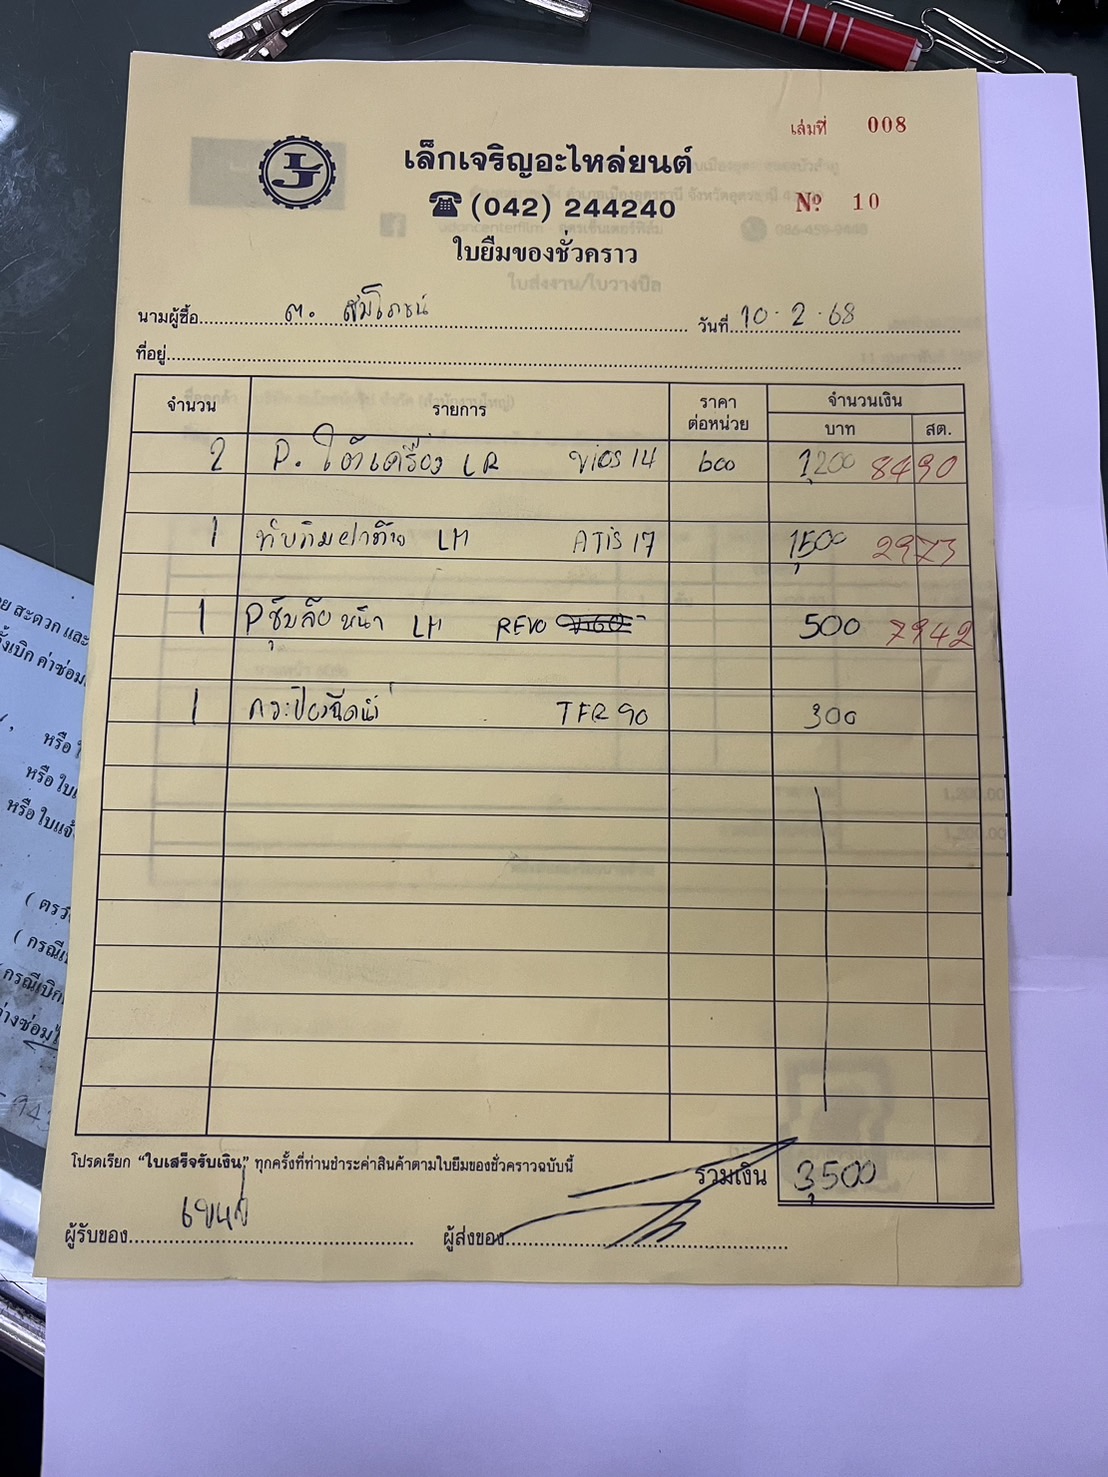 เล่มที่ 008
เล็กเจริญอะไหล่ยนต์
☎ (042) 244240
Nº 10
ใบยืมของชั่วคราว
นามผู้ซื้อ ต. สัมโภชน์ วันที่ 10-2-68
ที่อยู่
จำนวน รายการ ราคาต่อหน่วย จำนวนเงิน
บาท สต.
2 P. ใต้เครื่อง LR vios 14 600 1,200 8490
1 ทับทิมฝาท้าย LH ATIS 17 1,500 2973
1 P ซุ้มล้อ หน้า LH REVO 500 7942
1 กระป๋องฉีดน้ำ TFR 90 300
โปรดเรียก “ใบเสร็จรับเงิน” ทุกครั้งที่ท่านชำระค่าสินค้าตามใบยืมของชั่วคราวฉบับนี้
รวมเงิน 3,500
ผู้รับของ ผู้ส่งของ
ย สะดวก และ
ั้งเบิก ค่าซ่อม
หรือ
หรือ ใบ
หรือ ใบแจ้
( ตรว
( กรณี
(กรณีเบิก
่างซ่อม